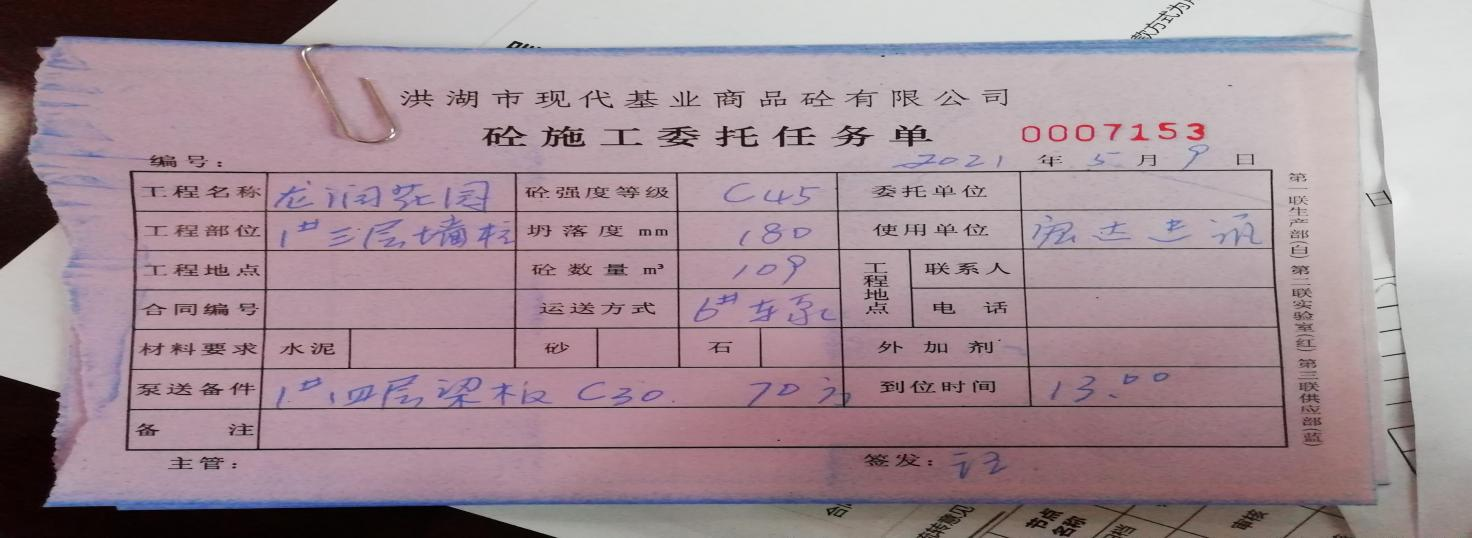 款方式为
洪湖市现代基业商品砼有限公司
砼施工委托任务单 0007153
编号: 2021年5月9日
工程名称 龙润花园 砼强度等级 C45 委托单位
工程部位 1#三层墙柱 坍落度mm 180 使用单位 宏达建筑
工程地点 砼数量m³ 109 工程地点 联系人
合同编号 运送方式 6#车泵 电话
材料要求 水泥 砂 石 外加剂
泵送备件 1#四层梁板 C30. 70方 到位时间 13.00
备注
主管: 签发: 
第一联生产部(白) 第二联实验室(红) 第三联供应部(蓝)
节点
名称
审核